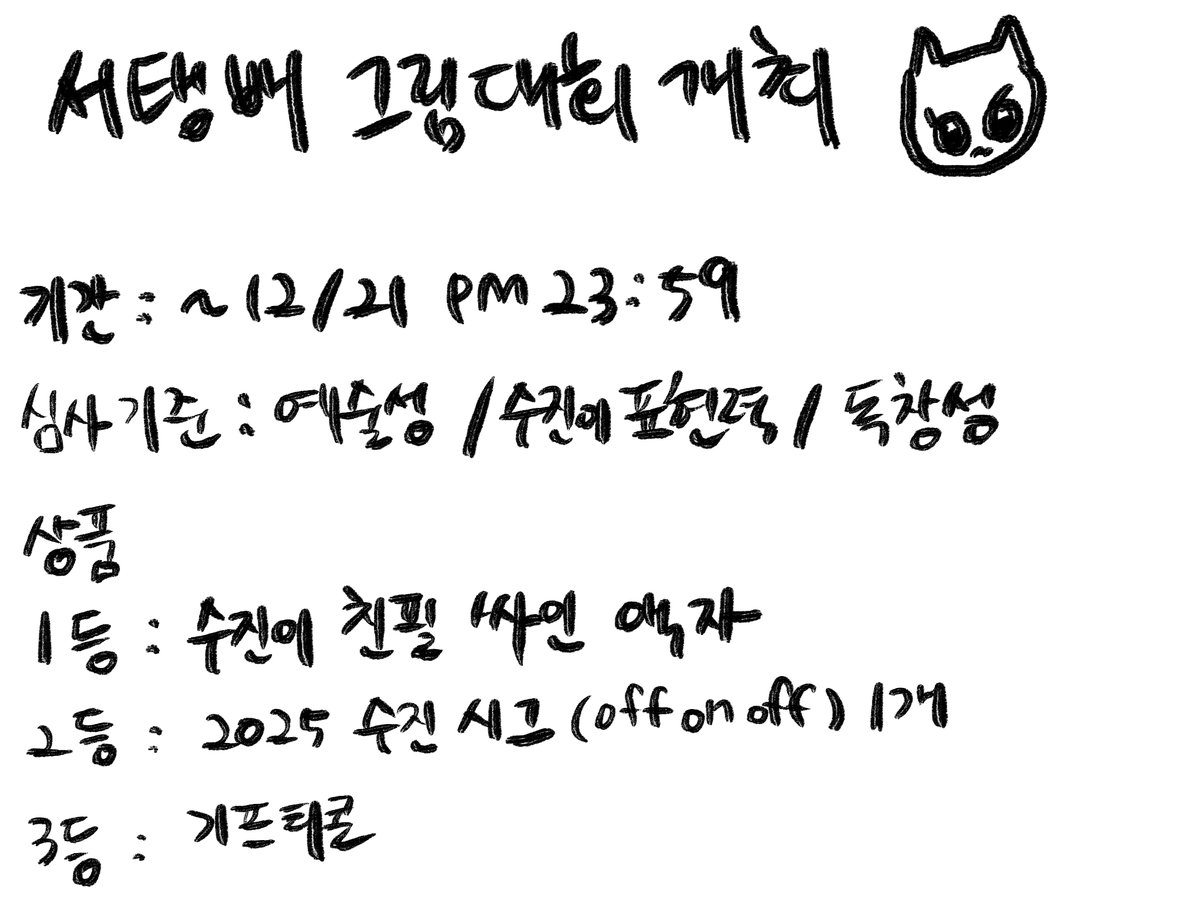 서탱배 그림대회 개최
기간 : ~12/21 PM 23:59
심사기준 : 예술성 / 수진이 표현력 / 독창성
상품
1등 : 수진이 친필 싸인 액자
2등 : 2025 수진 시그 (off on off) 1개
3등 : 기프티콘